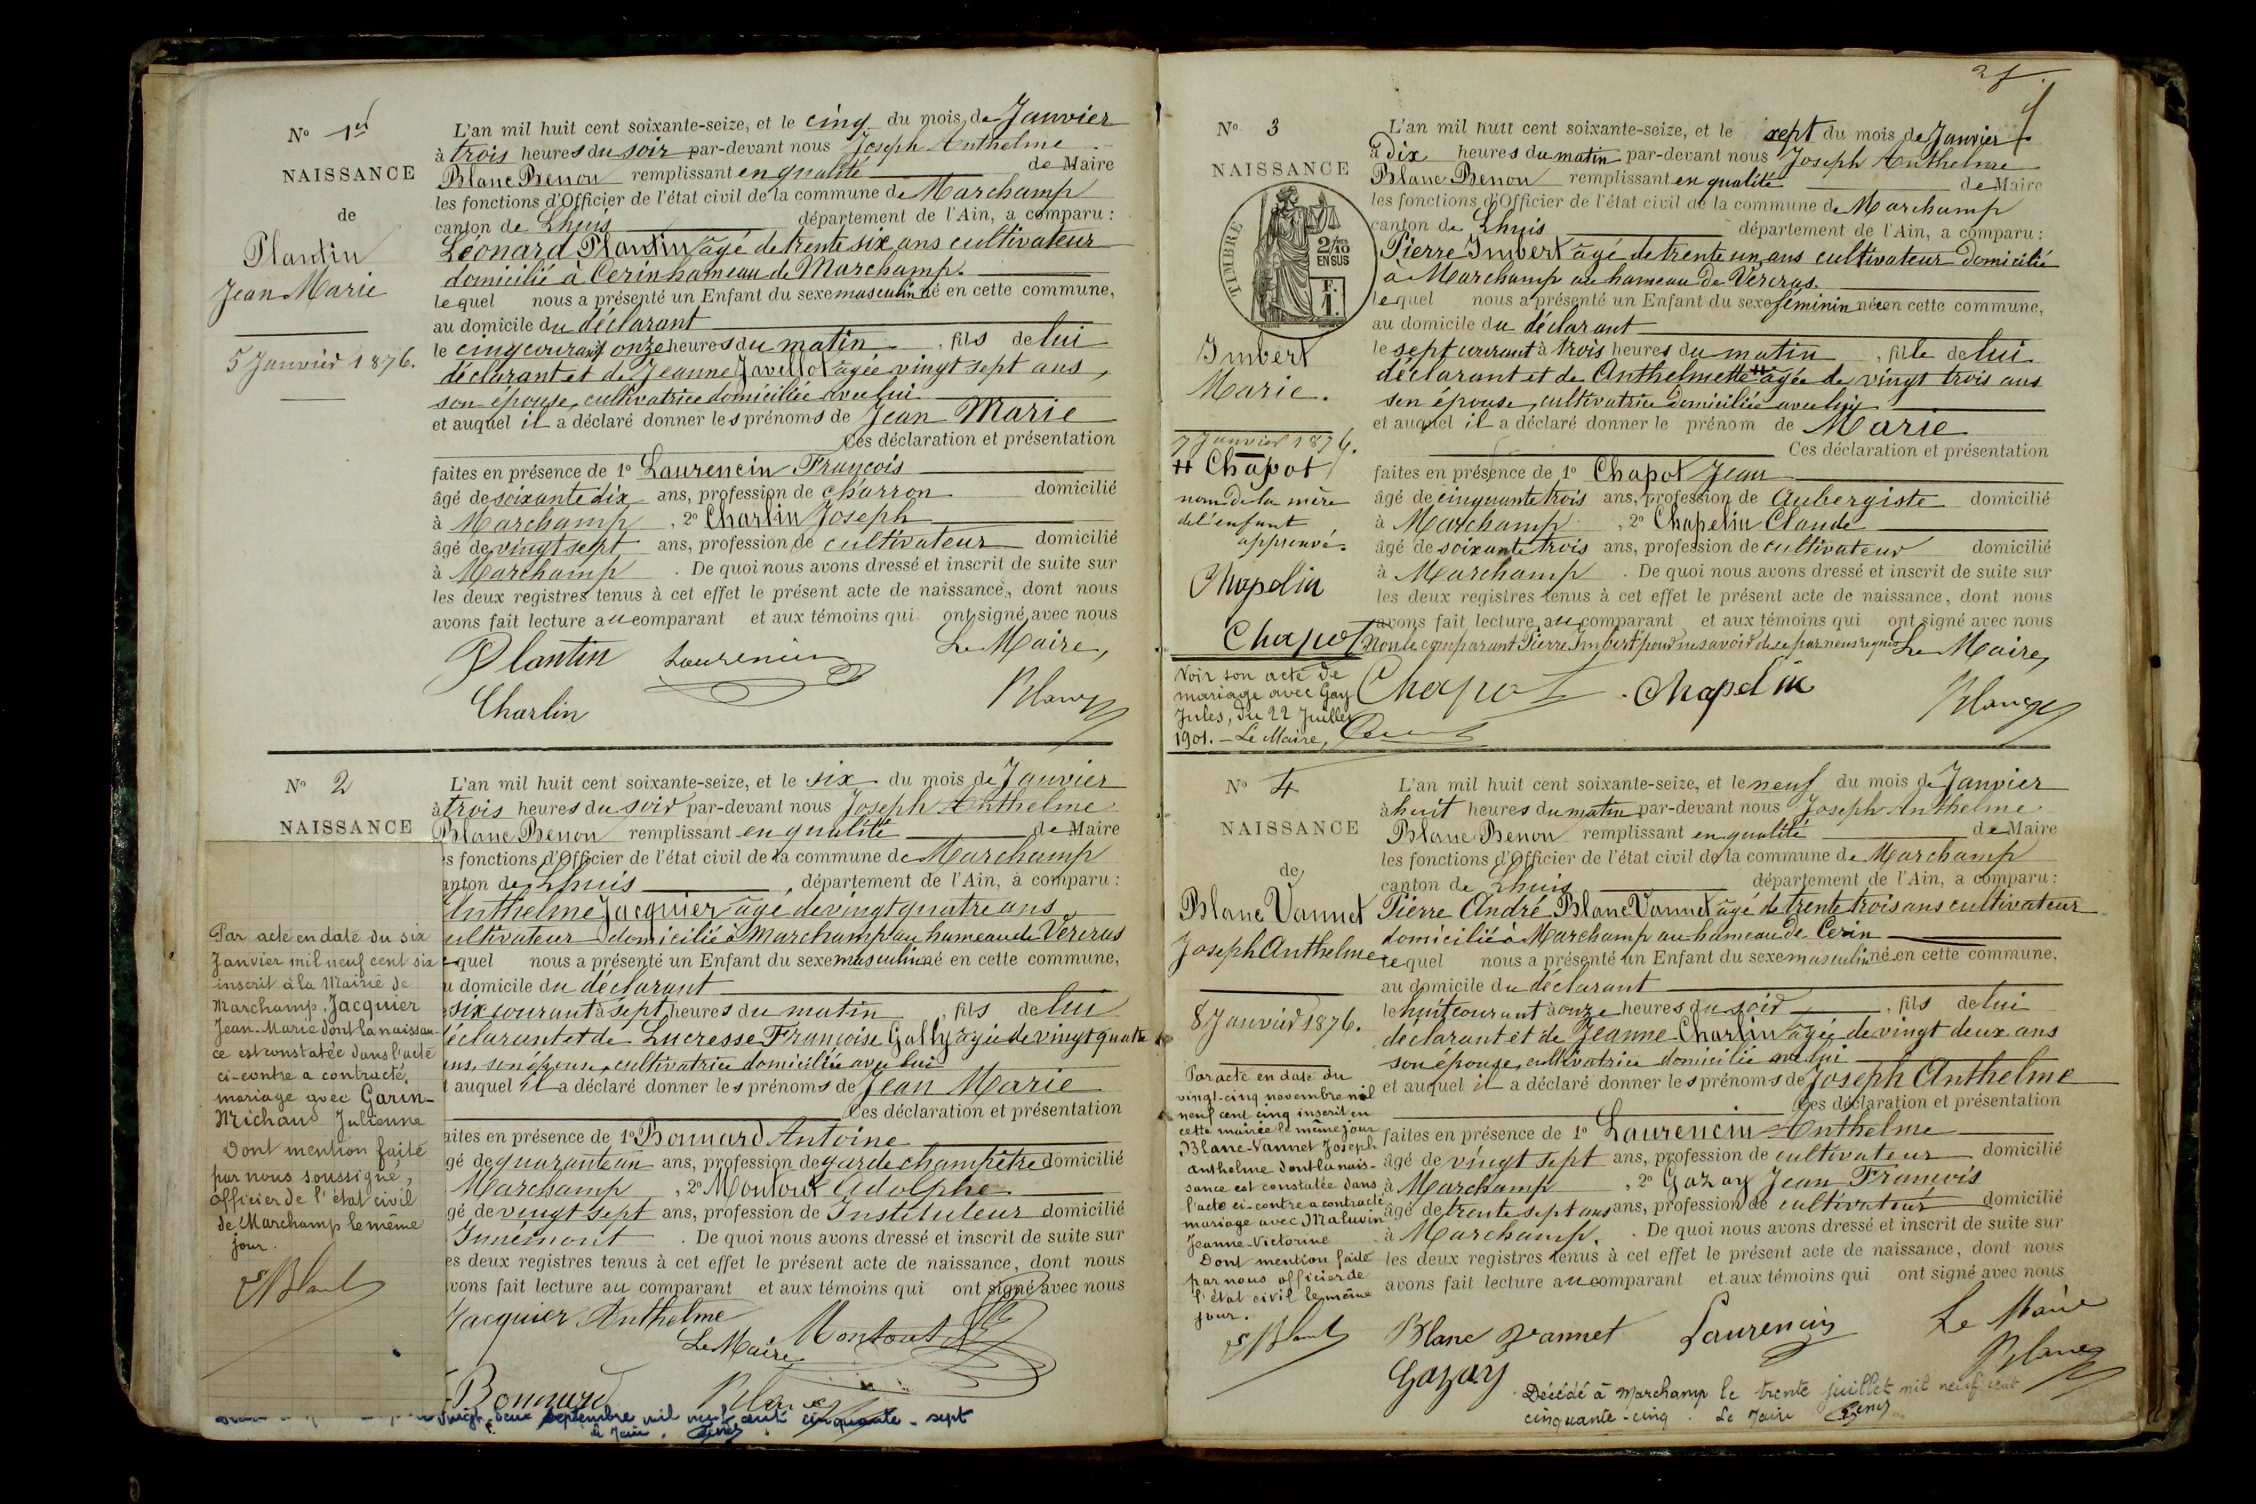 Nº 1er
NAISSANCE
de
Plantin
Jean Marie
5 Janvier 1876.
L'an mil huit cent soixante-seize, et le cinq du mois de Janvier
à trois heures du soir par-devant nous Joseph Anthelme
Blanc Benon remplissant en qualité de Maire
les fonctions d'Officier de l'état civil de la commune de Marchamp
canton de Lhuis département de l'Ain, a comparu :
Léonard Plantin âgé de trente six ans cultivateur
domicilié à Cerin hameau de Marchamp.
lequel nous a présenté un Enfant du sexe masculin né en cette commune,
au domicile du déclarant
le cinq courant onze heures du matin , fils de lui
déclarant et de Jeanne Javillot âgée vingt sept ans,
son épouse, cultivatrice domiciliée avec lui
et auquel il a déclaré donner les prénoms de Jean Marie
Ces déclaration et présentation
faites en présence de 1º Laurencin François
âgé de soixante dix ans, profession de charron domicilié
à Marchamp , 2º Charlin Joseph
âgé de vingt sept ans, profession de cultivateur domicilié
à Marchamp . De quoi nous avons dressé et inscrit de suite sur
les deux registres tenus à cet effet le présent acte de naissance, dont nous
avons fait lecture au comparant et aux témoins qui ont signé avec nous
Plantin Laurencin Le Maire,
Charlin Blanc
Nº 2
NAISSANCE
Par acte en date du six
Janvier mil neuf cent six
inscrit à la Mairie de
Marchamp, Jacquier
Jean-Marie dont la naissan-
ce est constatée dans l'acte
ci-contre a contracté
mariage avec Garin-
Michaud Julienne
Dont mention faite
par nous soussigné,
officier de l'état civil
de Marchamp le même
jour.
Blanc
L'an mil huit cent soixante-seize, et le six du mois de Janvier
à trois heures du soir par-devant nous Joseph Anthelme
Blanc Benon remplissant en qualité de Maire
es fonctions d'Officier de l'état civil de la commune de Marchamp
anton de Lhuis , département de l'Ain, a comparu :
Anthelme Jacquier âgé de vingt quatre ans
cultivateur domicilié à Marchamp au hameau de Vercras
equel nous a présenté un Enfant du sexe masculin né en cette commune,
u domicile du déclarant
six courant à sept heures du matin , fils de lui
déclarant et de Lucresse Françoise Golly âgée de vingt quatre
ans, son épouse, cultivatrice domiciliée avec lui
t auquel il a déclaré donner les prénoms de Jean Marie
Ces déclaration et présentation
aites en présence de 1º Bonnard Antoine
gé de quarante un ans, profession de garde champêtre domicilié
Marchamp , 2º Montout Adolphe
gé de vingt sept ans, profession de Instituteur domicilié
Innimont . De quoi nous avons dressé et inscrit de suite sur
es deux registres tenus à cet effet le présent acte de naissance, dont nous
vons fait lecture au comparant et aux témoins qui ont signé avec nous
Jacquier Anthelme
Le Maire Montout
Bonnard Blanc
vingt deux septembre mil neuf cent cinquante-sept
Le Maire,
Nº 3
NAISSANCE
TIMBRE
2/10
EN SUS
F.
1.
Imbert
Marie.
7 Janvier 1876.
++ Chapot
nom de la mère
de l'enfant
approuvé.
Chapelin
Chapot
Voir son acte de
mariage avec Gay
Jules, du 22 Juillet
1901. - Le Maire,
L'an mil huit cent soixante-seize, et le sept du mois de Janvier
à dix heures du matin par-devant nous Joseph Anthelme
Blanc Benon remplissant en qualité de Maire
les fonctions d'Officier de l'état civil de la commune de Marchamp
canton de Lhuis département de l'Ain, a comparu :
Pierre Imbert âgé de trente un ans cultivateur domicilié
à Marchamp au hameau de Vercras.
lequel nous a présenté un Enfant du sexe féminin née en cette commune,
au domicile du déclarant
le sept courant à trois heures du matin , fille de lui
déclarant et de Anthelmette ++ âgée de vingt trois ans
son épouse, cultivatrice domiciliée avec lui
et auquel il a déclaré donner le prénom de Marie
Ces déclaration et présentation
faites en présence de 1º Chapot Jean
âgé de cinquante trois ans, profession de Aubergiste domicilié
à Marchamp , 2º Chapelin Claude
âgé de soixante trois ans, profession de cultivateur domicilié
à Marchamp . De quoi nous avons dressé et inscrit de suite sur
les deux registres tenus à cet effet le présent acte de naissance, dont nous
avons fait lecture au comparant et aux témoins qui ont signé avec nous
Non le comparant Pierre Imbert pour ne savoir de ce par nous requis Le Maire
Chapot . Chapelin Blanc
Nº 4
NAISSANCE
de
Blanc Vannet
Joseph Anthelme
8 Janvier 1876.
Par acte en date du
vingt-cinq novembre mil
neuf cent cinq inscrit en
cette mairie le même jour
Blanc-Vannet Joseph
Anthelme dont la nais-
sance est constatée dans
l'acte ci-contre a contracté
mariage avec Maluvin
Jeanne-Victorine
Dont mention faite
par nous officier de
l'état civil le même
jour.
Blanc
L'an mil huit cent soixante-seize, et le neuf du mois de Janvier
à huit heures du matin par-devant nous Joseph Anthelme
Blanc Benon remplissant en qualité de Maire
les fonctions d'Officier de l'état civil de la commune de Marchamp
canton de Lhuis département de l'Ain, a comparu :
Pierre André Blanc Vannet âgé de trente trois ans cultivateur
domicilié à Marchamp au hameau de Cerin
lequel nous a présenté un Enfant du sexe masculin né en cette commune,
au domicile du déclarant
le huit courant à onze heures du soir , fils de lui
déclarant et de Jeanne Charlin âgée de vingt deux ans
son épouse, cultivatrice domicilié avec lui
et auquel il a déclaré donner les prénoms de Joseph Anthelme
Ces déclaration et présentation
faites en présence de 1º Laurencin Anthelme
âgé de vingt sept ans, profession de cultivateur domicilié
à Marchamp , 2º Gazay Jean François
âgé de trente sept ans ans, profession de cultivateur domicilié
à Marchamp. . De quoi nous avons dressé et inscrit de suite sur
les deux registres tenus à cet effet le présent acte de naissance, dont nous
avons fait lecture au comparant et aux témoins qui ont signé avec nous
Blanc Vannet Laurencin Le Maire
Gazay Blanc
Décédé à Marchamp le trente juillet mil neuf cent
cinquante-cinq. Le Maire